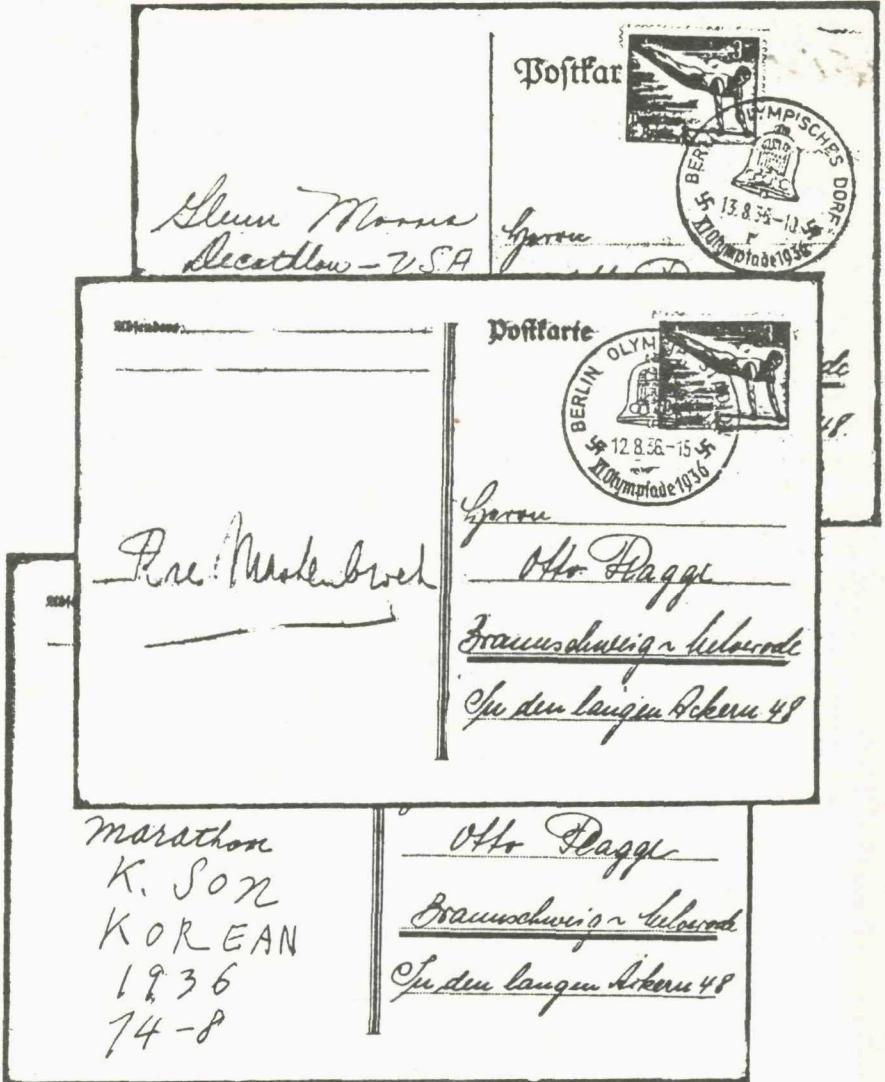 Postkar
BERL OLYMPISCHES DORF
13.8.36.-10
r
XI Olympiade 1936
Glenn Morris
Decathlon - USA
Herrn
48.
Absender:
Postkarte
BERLIN OLYMPIA
12.8.36.-15
XI Olympiade 1936
Herrn
Otto Flagge
Braunschweig
In den langen Äckern 48
marathon
K. SON
KOREAN
1936
14-8
Otto Flagge
Braunschweig
In den langen Äckern 48